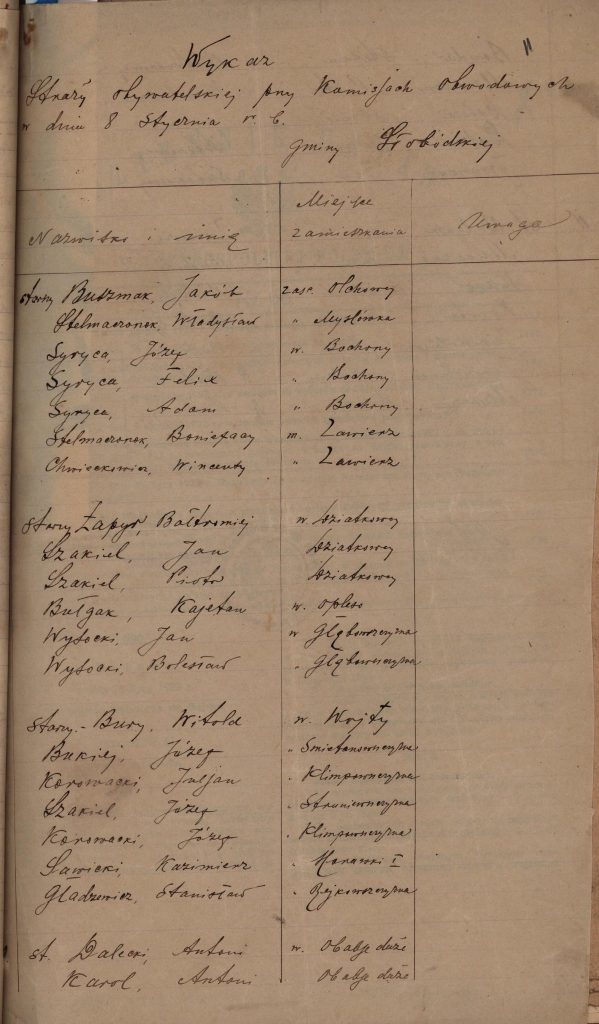 11
Wykaz
Straży obywatelskiej przy Komisjach Obwodowych
w dniu 8 Stycznia r. b.
gminy Słobódskiej
Nazwisko i imię Miejsce zamieszkania Uwaga
starszy Buszmak, Jakób zasc. Olchowy
Stelmaczonek, Władysław " Mysłówka
Syryca, Józef w. Bochony
Syryca, Felix " Bochony
Syryca, Adam " Bochony
Stelmaczonek, Bonifacy m. Zawierz
Chwieckowicz, Wincenty " Zawierz
starszy Łapyr, Bałtromiej w. Dziatkowy
Szakiel, Jan Dziatkowy
Szakiel, Piotr Dziatkowy
Bułgak, Kajetan w. Opleso
Wysocki, Jan w Głębowszczyzna
Wysocki, Bolesław " Głębowszczyzna
starszy - Bury, Witold w. Wojty
Bukiej, Józef " Smietanowszczyzna
Korowacki, Juljan " Klimpowszczyzna
Szakiel, Józef " Struniewszczyzna
Korowacki, Józef " Klimpowszczyzna
Sawicki, Kazimierz " Morawki I
Gladzewicz, Stanisław " Rejkowszczyzna
st. Dalecki, Antoni w. Obabje duże
Karol, Antoni Obabje duże